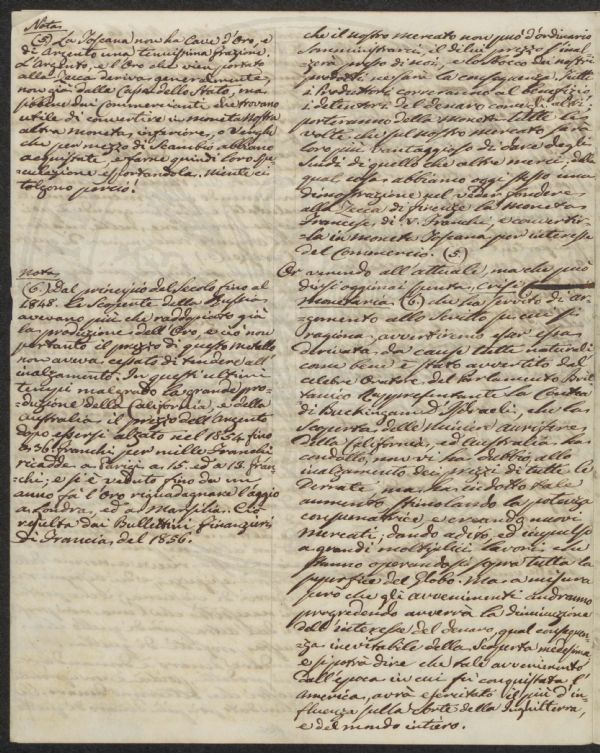 Nota
(5) La Toscana non ha Cave d'Oro, e
di Argento una tenuissima frazione.
L'Argento, e l'Oro che vien portato
alla Zecca deriva generalmente,
non già dalle Casse dello Stato, ma
sibbene dai Commercianti che trovano
utile di convertire in moneta Nostra
altra moneta inferiore, o Verghe
che per mezzo di Scambio abbiano
acquistate, e farne quindi loro spe-
culazione esportandola. Niente ci
tolgono perciò!
nota
(6) Dal principio del Secolo fino al
1848. le Scoperte della Russia
avevano più che raddoppiato già
la produzione dell'Oro, e ciò non
pertanto il prezzo di questo metallo
non aveva cessato di tendere all'
inalzamento. In questi ultimi
tempi malgrado la grande pro-
duzione della California, e della
Australia il prezzo dell'Argento
dopo essersi alzato nel 1854 fino
a 36. franchi per mille Franchi
ricadde a Parigi a 15. ed a 18. fran-
chi; e si è veduto fino da un
anno fà l'Oro riguadagnare l'aggio
a Londra, ed a Marsilia. Ciò
resulta dai Bullettini finanzieri
di Francia del 1856.
che il nostro mercato non può d'ordinario
somministrarci, il di lui prezzo s'inal-
zerà presso di noi, e lo stocco dei nostri
prodotti, ne sarà la conseguenza. Tutti
i Produttori correranno al benefizio,
i detentori del denaro con essi altri
porteranno della moneta tutte le
volte che sul nostro mercato sarà
loro più vantaggioso di dare degli
Scudi di quello che altre merci; della
qual cosa abbiamo oggi stesso una
dimostrazione nel veder fondere
alla Zecca di Firenze la moneta
Francese di 5. Franchi, e convertir-
la in moneta Toscana per interesse
del Commercio. (5.)
Or venendo all'attuale, ma che può
dirsi oggimai spenta, crisi
monetaria (6) che ha servito di ar-
gomento allo Scritto su cui si
ragiona, avvertiremo esser essa
derivata da cause tutte naturali
come bene è stato avvertito dal
celebre Oratore del Parlamento Brit-
tannico Rappresentante la Contea
di Buckingam D'Israeli, che la
Scoperta delle Miniere aurifere
della California, ed Australia ha
condotto, non vi ha dubbio, allo
inalzamento dei prezzi di tutte le
Derrate, ma ha eccedotto tale
aumento stimolando la potenza
consumatrice e creando nuovi
mercati; dando adesso, ed impulso
a grandi molteplici lavori che
stanno operandosi sopra tutta la
superfice del Globo. Ma a misura
però che gli avvenimenti andranno
progredendo avverrà la diminuzione
dell'interesse del denaro, qual conseguen-
za inevitabile della scoperta medesima,
e si potrà dire che tale avvenimento
dall'epoca in cui fù conquistata l'
America, avrà esercitato il più d'in-
fluenza sulla Sorte della Inghilterra,
e del mondo intiero.